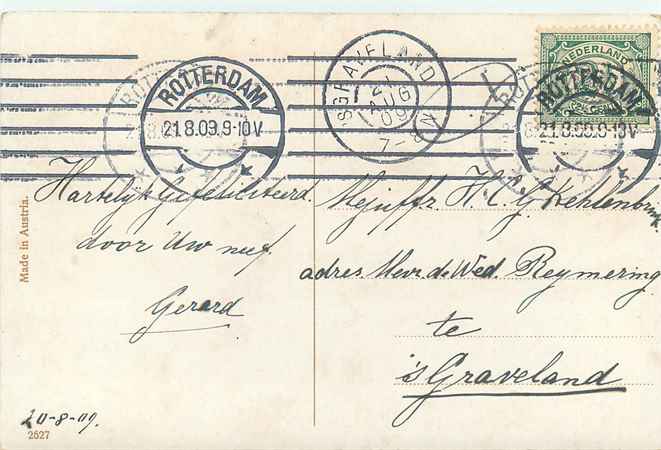 NEDERLAND
2½ CENT
ROTTERDAM
21.8.09.9-10V
'S GRAVELAND
21
AUG
09
7-8N
ROTTERDAM
21.8.09.9-
Hartelijk gefeliciteerd
door Uw neef
Gerard
20-8-09.
2527
Made in Austria.
Mejuffr. H. C. G. Kehlenbrink
adres Mevr. de Wed. Reymering
te
's Graveland